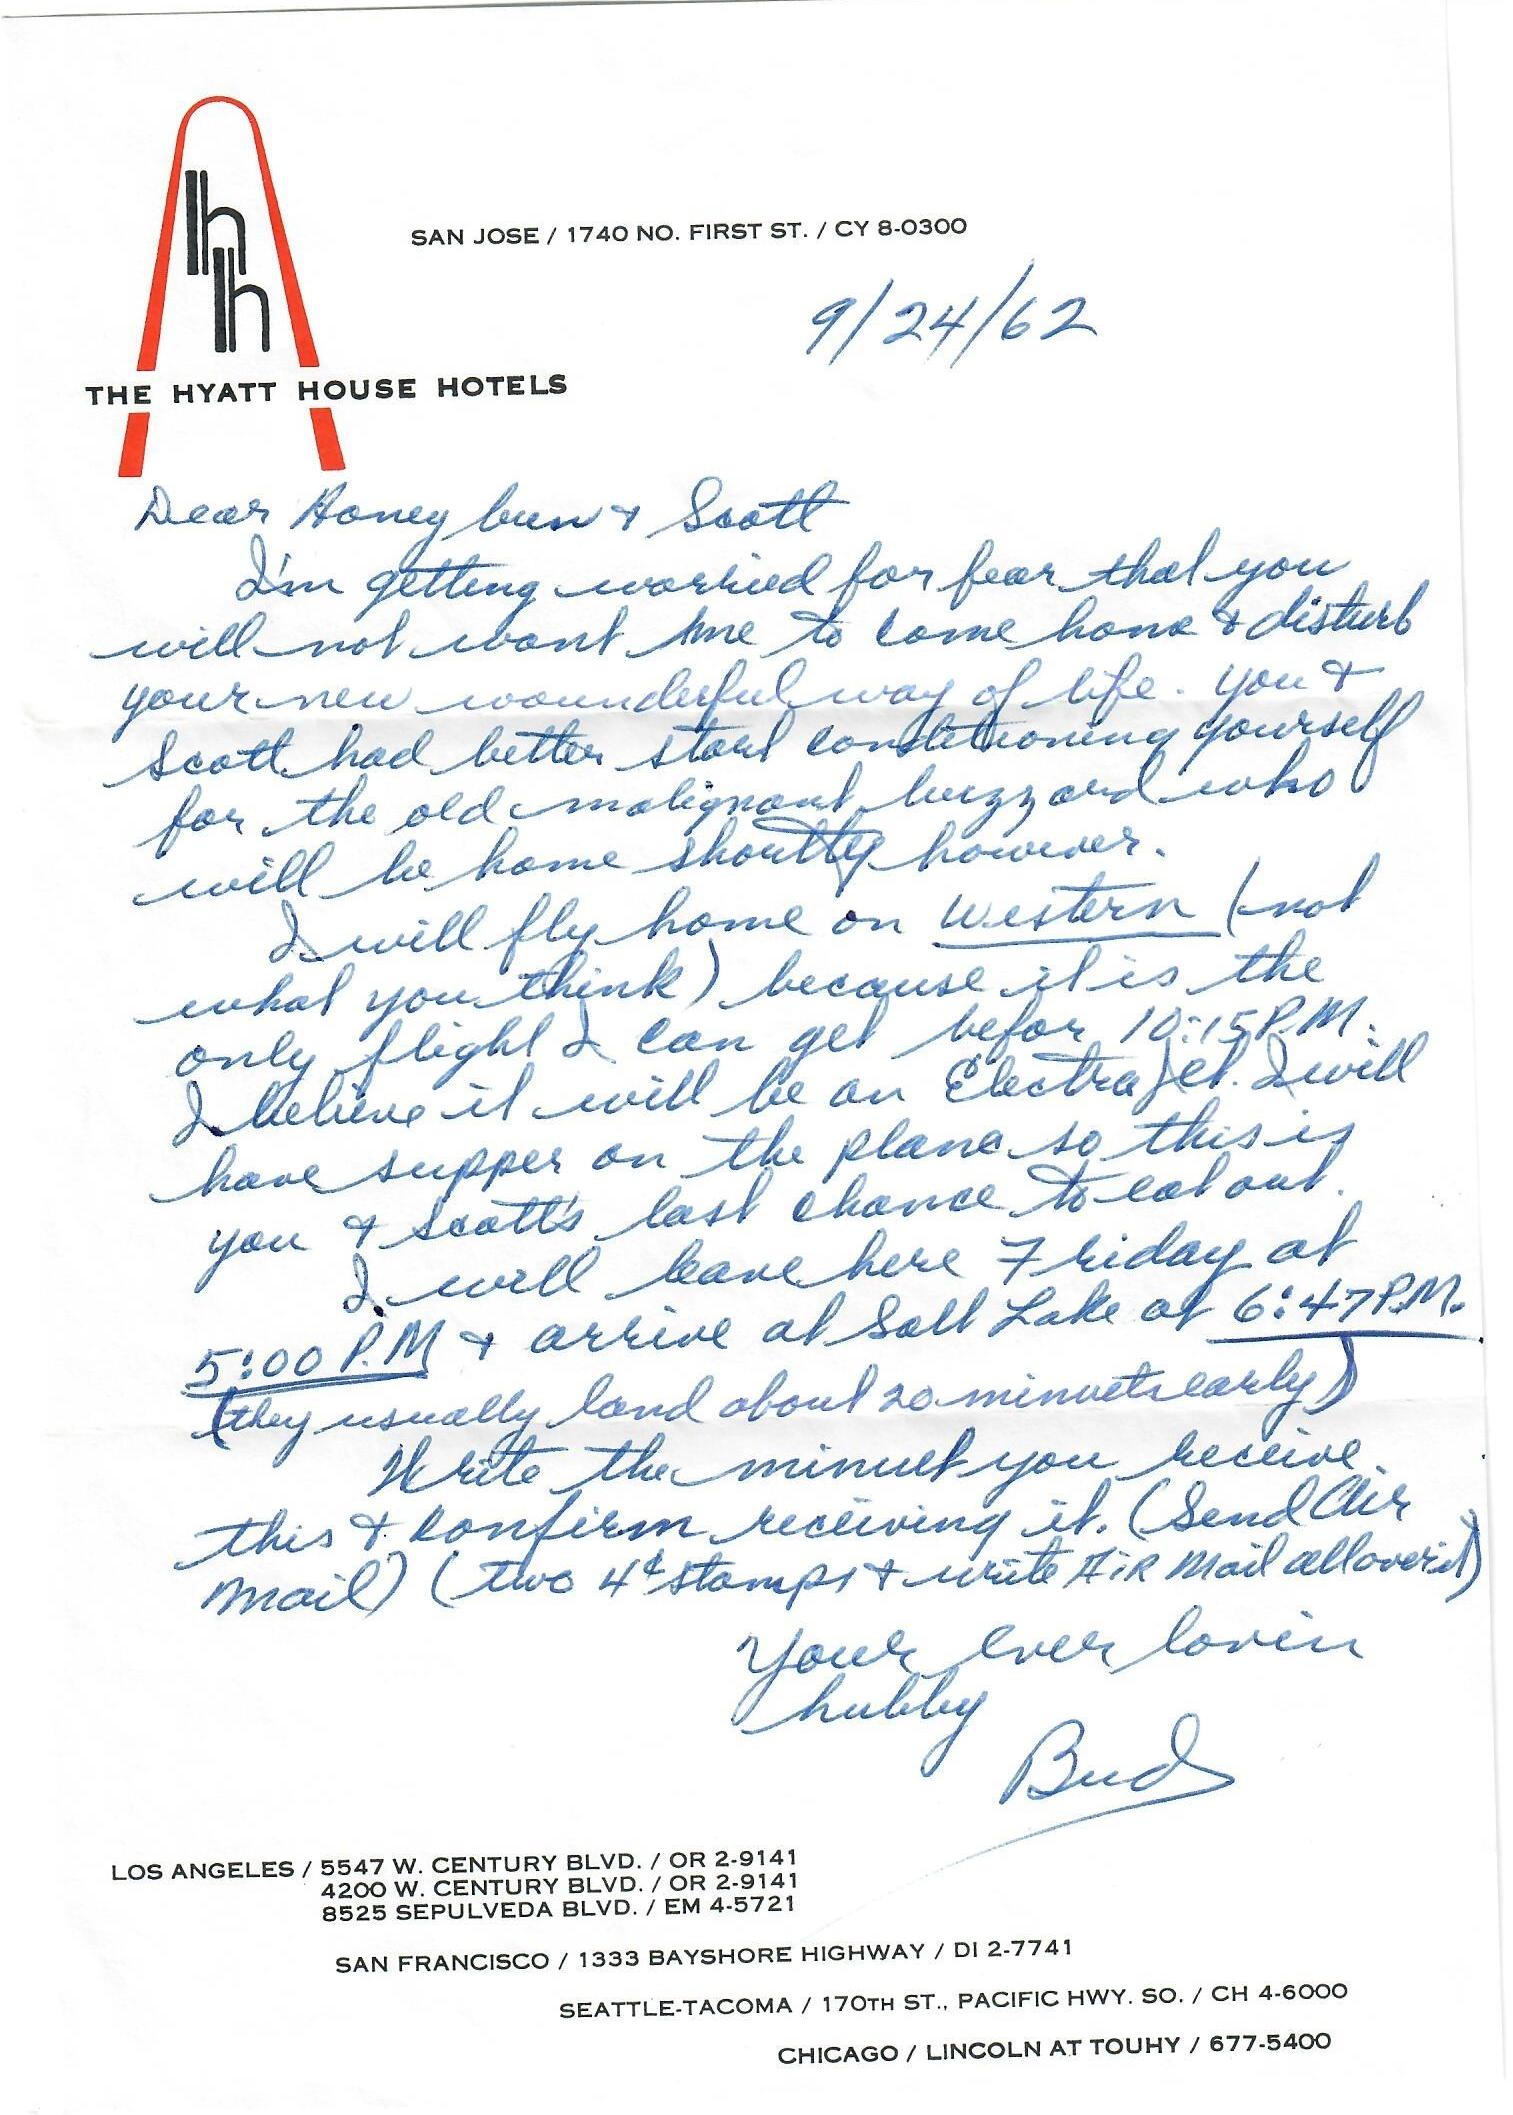 hh
SAN JOSE / 1740 NO. FIRST ST. / CY 8-0300
9/24/62
THE HYATT HOUSE HOTELS
Dear Honey bun & Scott
I'm getting worried for fear that you
will not want me to come home & disturb
your new wounderful way of life. You &
Scott had better start conditioning yourself
for the old malignant buzzard who
will be home shortly however.
I will fly home on Western (not
what you think) because it is the
only flight I can get befor 10:15 P.M.
I believe it will be an Electra Jet. I will
have supper on the plane so this is
you & Scott's last chance to eat out.
I will leave here Friday at
5:00 P.M & arrive at Salt Lake at 6:47 P.M.
(they usually land about 20 minuets early)
Write the minuet you receive
this & confirm receiving it. (Send Air
Mail) (two 4¢ stamps & write AiR Mail all over it)
Your ever lovin
hubby
Bud
LOS ANGELES / 5547 W. CENTURY BLVD. / OR 2-9141
4200 W. CENTURY BLVD. / OR 2-9141
8525 SEPULVEDA BLVD. / EM 4-5721
SAN FRANCISCO / 1333 BAYSHORE HIGHWAY / DI 2-7741
SEATTLE-TACOMA / 170TH ST., PACIFIC HWY. SO. / CH 4-6000
CHICAGO / LINCOLN AT TOUHY / 677-5400